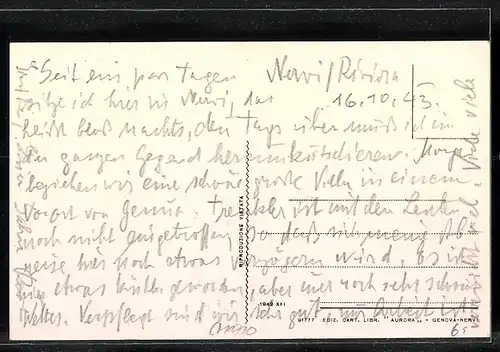 Nervi/Riviera
16.10.43.
Seit ein par Tagen
sitze ich hier in Nervi, das
heißt bloß Nachts, den Tags über muß ich in
der ganzen Gegend herumkutschieren. Morgen
beziehen wir eine schöne große Villa in einem
Vorort von Genua. ist mit den Leuten
noch nicht eingetroffen so daß sich meine Ab
reise hier noch etwas verzögern wird. Es ist
etwas kühler geworden, aber immer noch sehr schönes
Wetter. Verpflegt sind wir sehr gut, nur Arbeit ist
viele
RIPRODUZIONE VIETATA
1942 XXI
01777 EDIZ. CART. LIBR. "AURORA" - GENOVA-NERVI
6.-